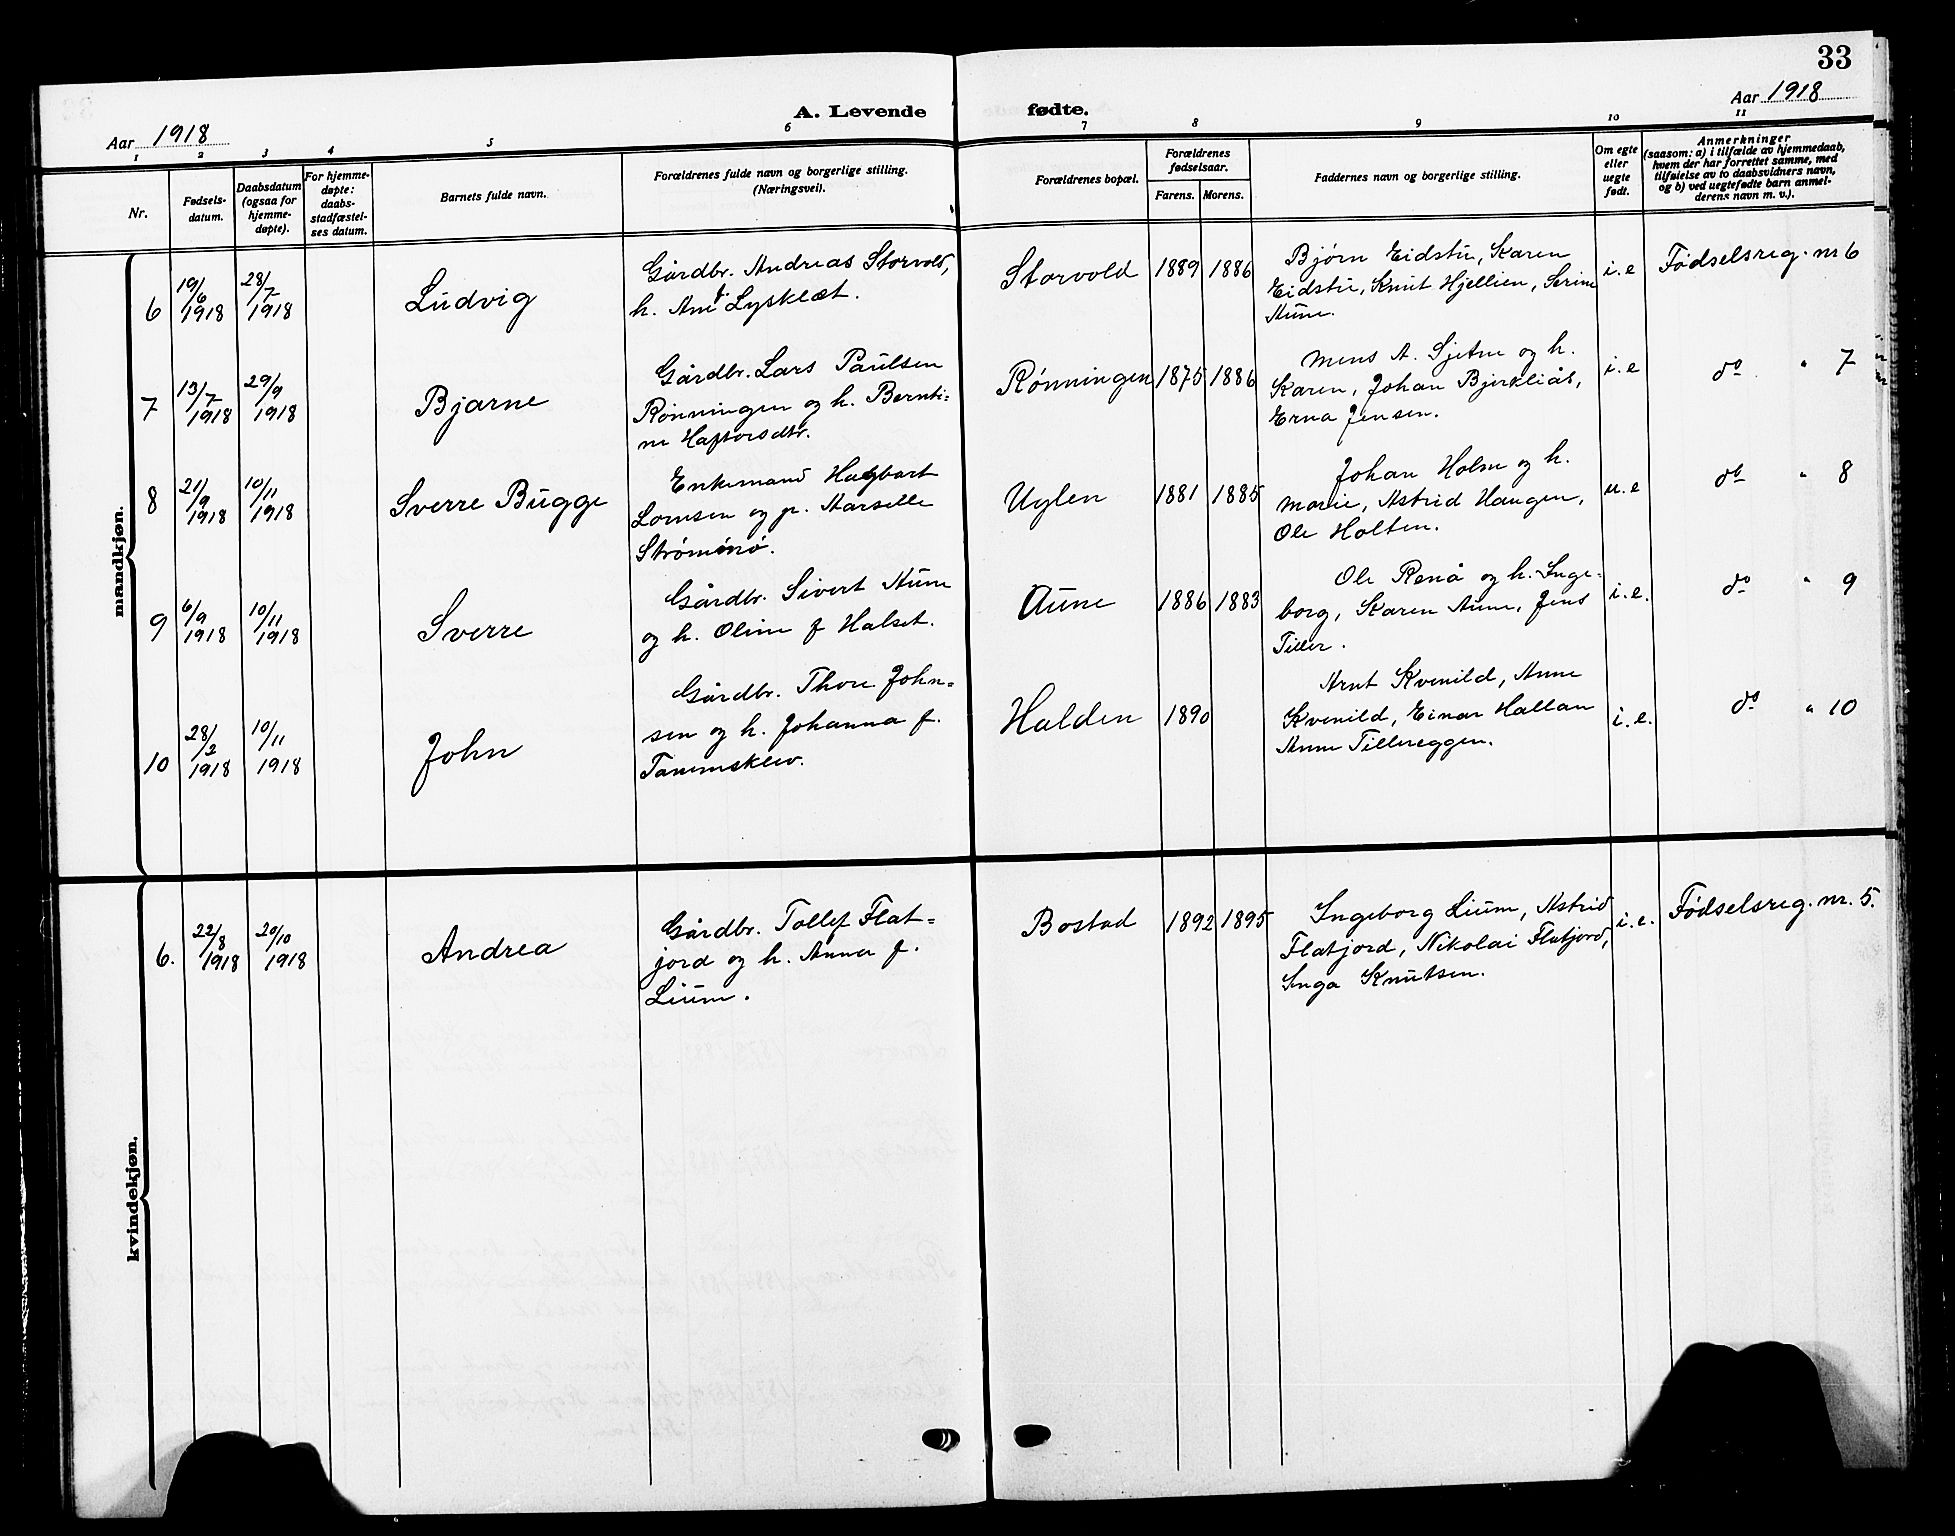 33
Aar 1918
A. Levende fødte.
Aar 1918
1 2 3 4 5 6 7 8 9 10 11
Nr.
Fødsels-
datum.
Daabsdatum
(ogsaa for
hjemme-
døpte).
For hjemme-
døpte:
daabs-
stadfæstel-
ses datum.
Barnets fulde navn.
Forældrenes fulde navn og borgerlige stilling.
(Næringsvei).
Forældrenes bopæl.
Forældrenes
fødselsaar.
Farens. Morens.
Faddernes navn og borgerlige stilling.
Om egte
eller
uegte
født.
Anmerkninger
(saasom: a) i tilfælde av hjemmedaab,
hvem der har forrettet samme, med
tilføielse av to daabsvidners navn,
og b) ved uegtefødte barn anmel-
derens navn m. v.).
mandkjøn.
6
19/6
1918
28/7
1918
Ludvig
Gårdbr. Andreas Storvold,
h. Ane f. Lysklæt.
Storvold
1889 1886
Bjørn Eidstu, Karen
Eidstu, Knut Hjellien, Serine
Aune.
i. e
Fødselsreg. nr 6
7
13/7
1918
29/9
1918
Bjarne
Gårdbr. Lars Paulsen
Rønningen og h. Bernti-
ne Haftorsdtr.
Rønningen
1875 1886
Mens A. Sjetne og h.
Karen, Johan Bjerkliås,
Erna Jensen.
i. e
do " 7
8
21/9
1918
10/11
1918
Sverre Bugge
Enkemand Hagbart
Lornsen og p. Aarselle
Strømsnø.
Uglen
1881 1885
Johan Holm og h.
Marie, Astrid Haugen,
Ole Holten.
u. e
do " 8
9
6/9
1918
10/11
1918
Sverre
Gårdbr. Sivert Aune
og h. Oline f Halset.
Aune
1886 1883
Ole Renå og h. Inge-
borg, Karen Aune, Jens
Tiller.
i. e.
do " 9
10
28/2
1918
10/11
1918
John
Gårdbr. Thore John-
sen og h. Johanna f.
Tanemsklev.
Halden
1890
Arnt Kvenild, Anne
Kvenild, Einar Hallan
Anne Tillereggen.
i. e.
do " 10
kvindekjøn.
6.
22/8
1918
20/10
1918
Andrea
Gårdbr. Tollef Flat-
jord og h. Anna f.
Lium.
Bostad
1892 1895
Ingeborg Lium, Astrid
Flatjord, Nikolai Flatjord,
Inga Knutsen.
i. e.
Fødselsreg. nr. 5.